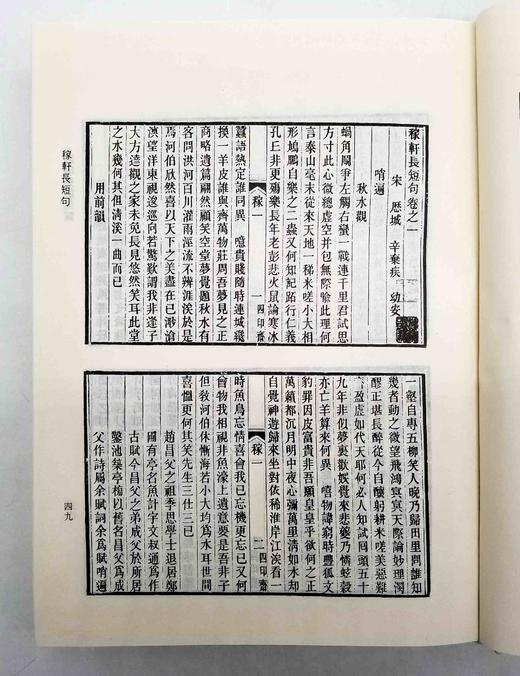 稼軒長短句
四九
稼軒長短句卷之一
宋 厯城 辛棄疾 幼安
哨遍
秋水觀
蝸角鬭爭左觸右蠻一戰連千里君試思
方寸此心微總虛空并包無際喻此理何
言泰山毫末從來天地一稊米嗟小大相
形鳩鵬自樂之二蟲又何知記跖行仁義
孔丘非更殤樂長年老彭悲火鼠論寒冰
稼一
一
四印齋
蠶語熱定誰同異 噫貴賤隨時連城纔
換一羊皮誰與齊萬物莊周吾夢見之正
商略遺篇翩然顧笑空堂夢覺題秋水有
客問洪河百川灌雨涇流不辨涯涘於是
焉河伯欣然喜以天下之美盡在已渺滄
溟望洋東視逡巡向若驚歎謂我非逢子
大方達觀之家未免長見悠然笑耳此堂
之水幾何其但清溪一曲而已
用前韻
一壑自專五柳笑人晚乃歸田里問誰知
幾者動之微望飛鴻冥冥天際論妙理濁
醪正堪長醉從今自釀躬耕米嗟美惡難
言盈虛如代天耶何必人知試回頭五十
九年非似夢裏歡娛覺來悲夔乃憐蚿穀
亦亡羊算來何異 嘻物諱窮時豐狐文
豹罪因皮富貴非吾願皇皇乎欲何之正
萬籟都沉月明中夜心彌萬里清如水却
自覺神遊歸來坐對依稀淮岸江涘看一
稼一
二
四印齋
時魚鳥忘情喜會我已忘機更忘已又何
會物我相視非魚濠上遺意要是吾非子
但教河伯休慚海若小大均爲水耳世間
喜慍更何其笑先生三仕三已
趙昌父之祖季思學士退居鄭
圃有亭名魚計宇文叔通爲作
古賦今昌父之弟成父於所居
鑿池築亭榜以舊名昌父爲成
父作詩屬余賦詞余爲賦哨遍